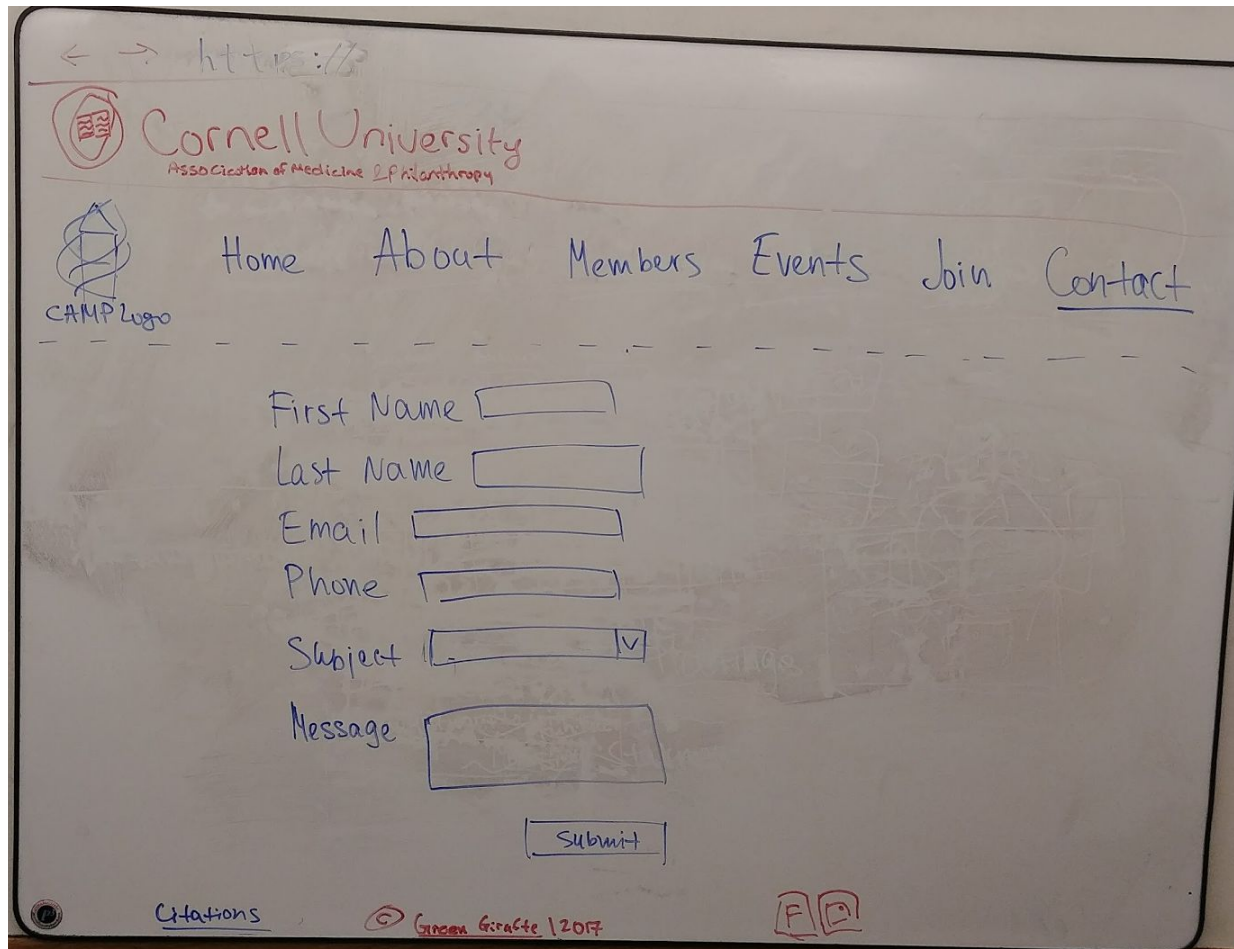 ← → https://
Cornell University
Association of Medicine & Philanthropy
CAMP Logo
Home About Members Events Join Contact
First Name
Last Name
Email
Phone
Subject
Message
Submit
Citations © Green Giraffe | 2017 F